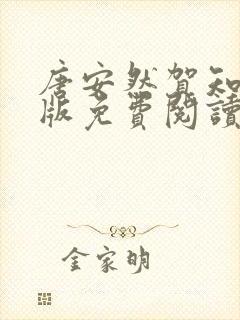 唐安然賀知
版免費閱讀
金家明